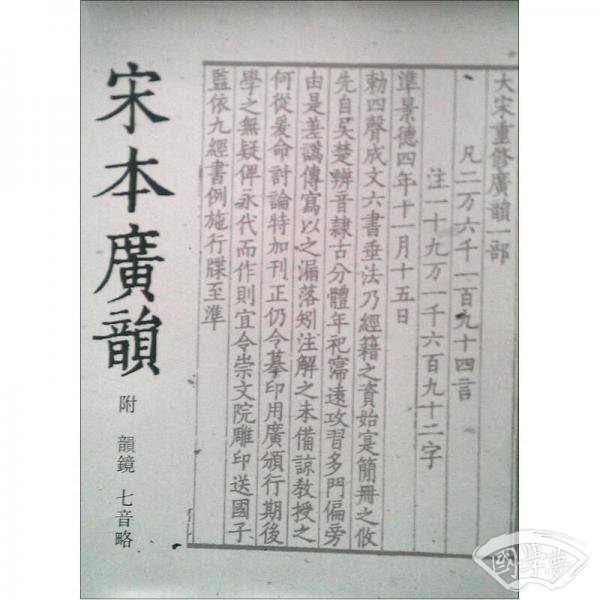 大宋重修廣韻一部
凡二万六千一百九十四言
注一十九万一千六百九十二字
準景德四年十一月十五日
勑四聲成文六書垂法乃經籍之資始寔簡冊之攸
先自吳楚辨音隸古分體年祀寖遠攻習多門偏旁
由是差譌傳寫以之漏落矧注解之未備諒教授之
何從爰命討論特加刊正仍令摹印用廣頒行期後
學之無疑俾永代而作則宜令崇文院雕印送國子
監依九經書例施行牒至準
宋本廣韻
附 韻鏡 七音略
國學夢